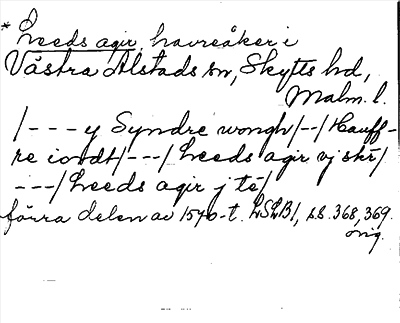 * Leeds agir, havreåker i
Västra Alstads sn, Skytts hd,
Malm. l.
/---y Syndre wongh/--/Hauff-
re iordt/---/Leeds agir vj skr/
---/Leeds agir j te/
förra delen av 1570-t. LSLB1, ss. 368, 369.
orig.